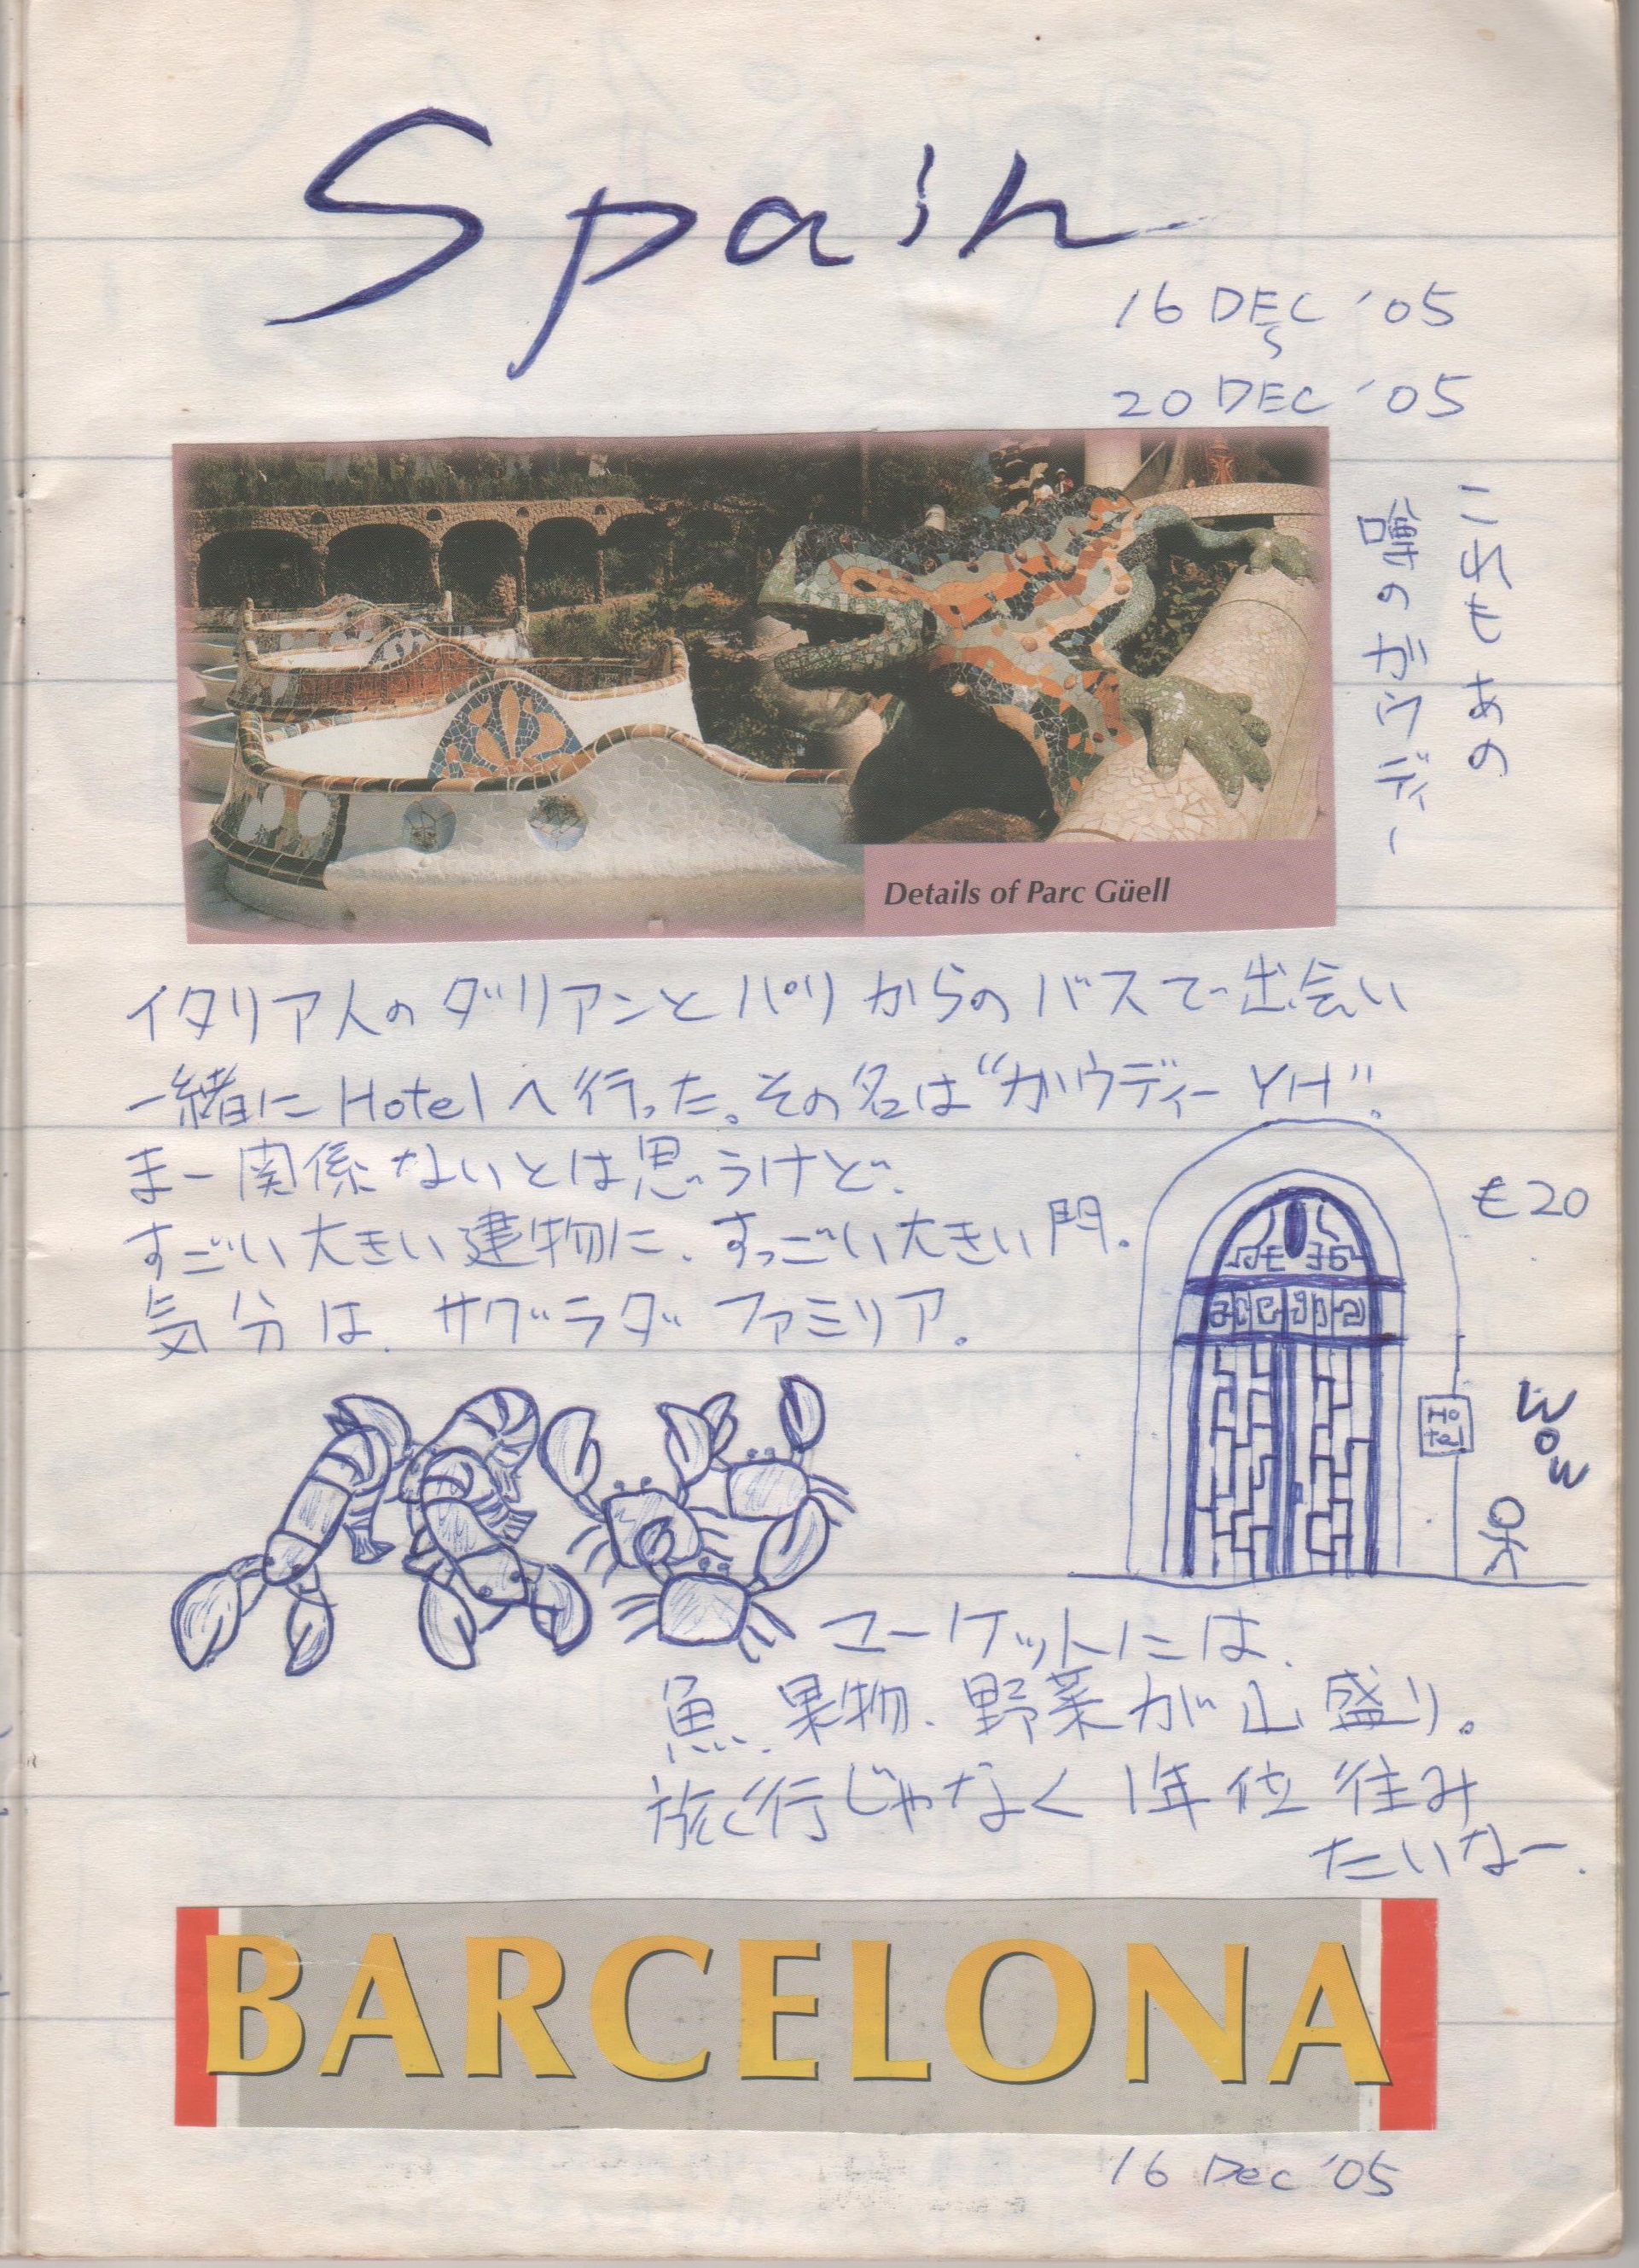 Spain
16 DEC '05
〜
20 DEC '05
これもあの
噂のガウディー
Details of Parc Güell
イタリア人のダリアンとパリからのバスで出会い
一緒にHotelへ行った。その名は“ガウディーYH”.
まー関係ないとは思うけど、
すごい大きい建物に、すっごい大きい門。
気分は、サグラダファミリア。
€20
Ho
tel
WOW
マーケットには、
魚、果物、野菜が山盛り。
旅行じゃなく1年位住み
たいなー.
BARCELONA
16 Dec '05